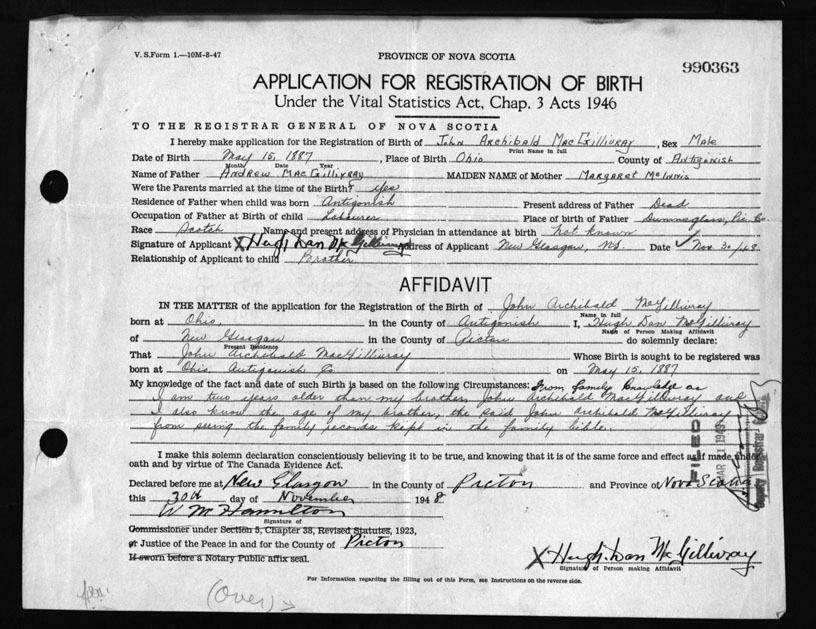 V. S. Form 1.—10M-8-47
PROVINCE OF NOVA SCOTIA
990363
APPLICATION FOR REGISTRATION OF BIRTH
Under the Vital Statistics Act, Chap. 3 Acts 1946
TO THE REGISTRAR GENERAL OF NOVA SCOTIA
I hereby make application for the Registration of Birth of John Archibald MacGillivray, Sex Male
Print Name in full
Date of Birth May 15, 1887, Place of Birth Ohio County of Antigonish
Month Date Year
Name of Father Andrew MacGillivray MAIDEN NAME of Mother Margaret McInnis
Were the Parents married at the time of the Birth? yes
Residence of Father when child was born Antigonish Present address of Father Dead
Occupation of Father at Birth of child Labourer Place of birth of Father Dunmaglass, Pic. Co.
Race Scotch Name and present address of Physician in attendance at birth not known
Signature of Applicant X Hugh Dan McGillivray Address of Applicant New Glasgow, N.S. Date Nov 30/48
Relationship of Applicant to child Brother
AFFIDAVIT
IN THE MATTER of the application for the Registration of the Birth of John Archibald McGillivray
Name in full
born at Ohio, in the County of Antigonish I, Hugh Dan McGillivray
Name of Person Making Affidavit
of New Glasgow in the County of Pictou do solemnly declare:
Present Residence
That John Archibald MacGillivray Whose Birth is sought to be registered was
born at Ohio, Antigonish Co on May 15, 1887
My knowledge of the fact and date of such Birth is based on the following Circumstances: From family knowledge as
I am two years older than my brother John Archibald MacGillivray and
I also know the age of my brother, the said John Archibald McGillivray
from seeing the family records kept in the family bible.
I make this solemn declaration conscientiously believing it to be true, and knowing that it is of the same force and effect as if made under
oath and by virtue of The Canada Evidence Act.
Declared before me at New Glasgow in the County of Pictou and Province of Nova Scotia
this 30th day of November 1948
W M Hamilton
Signature of
Commissioner under Section 5, Chapter 38, Revised Statutes, 1923,
or Justice of the Peace in and for the County of Pictou
If sworn before a Notary Public affix seal.
X Hugh Dan McGillivray
Signature of Person making Affidavit
For Information regarding the filling out of this Form, see Instructions on the reverse side.
(Over)
FILED
MAR 11 1949
Deputy Registrar